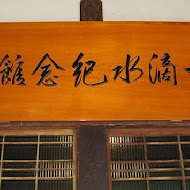 一滴水紀念館